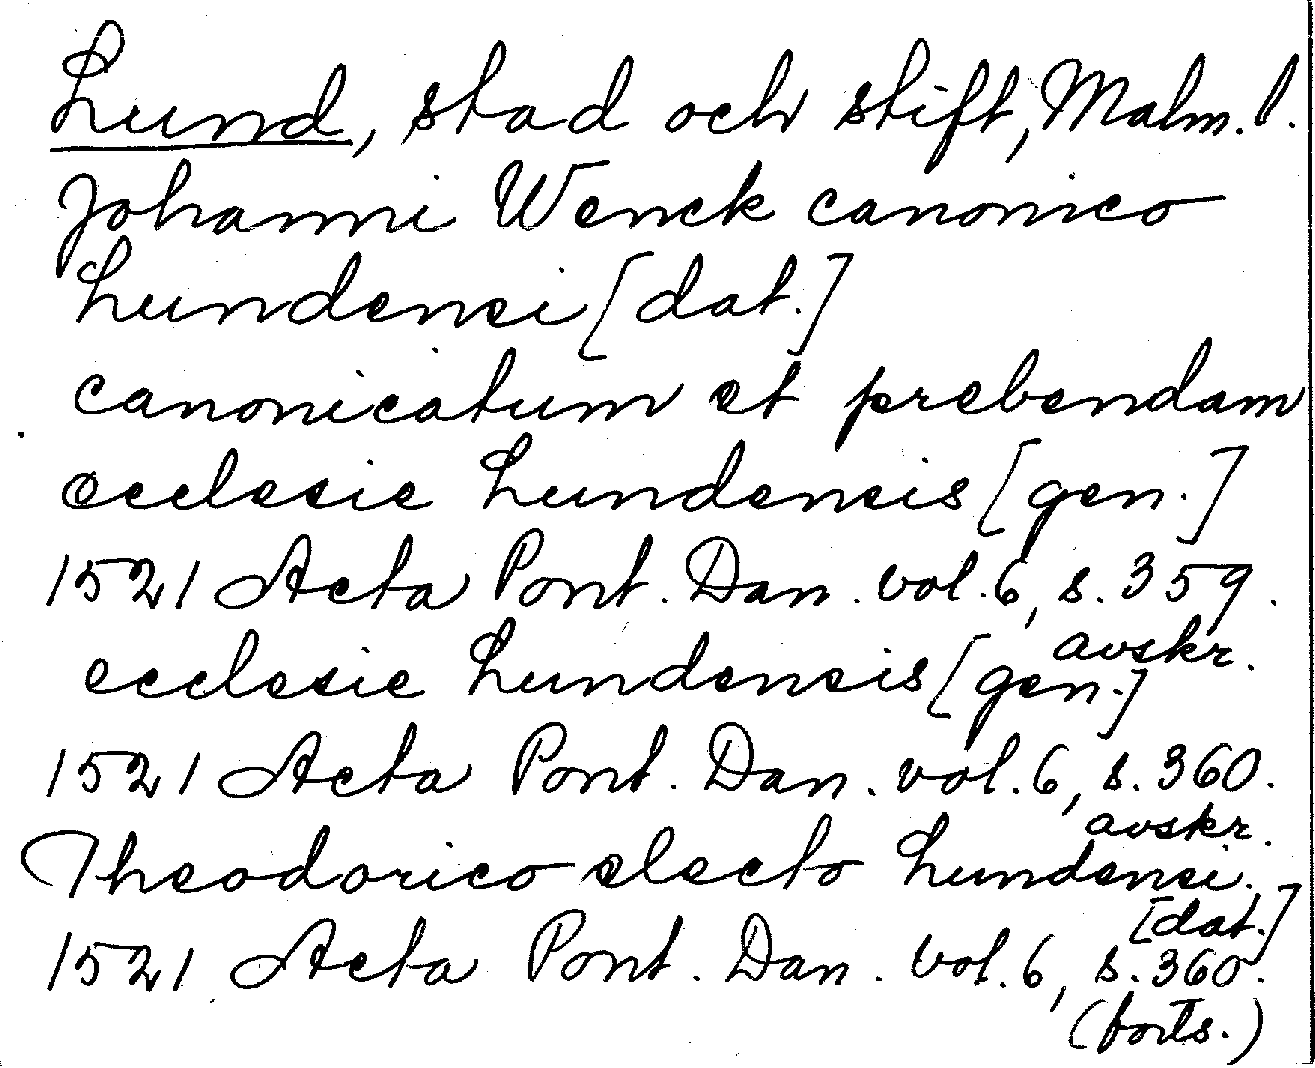 Lund, stad och stift, Malm. l.
Johanni Wenck canonico
Lundensi [dat.]
canonicatum et prebendam
ecclesie Lundensis [gen.]
1521 Acta Pont. Dan. vol. 6, s. 359.
avskr.
ecclesie Lundensis [gen.]
1521 Acta Pont. Dan. vol. 6, s. 360.
avskr.
Theodorico electo Lundensi.
[dat.]
1521 Acta Pont. Dan. vol. 6, s. 360.
(forts.)